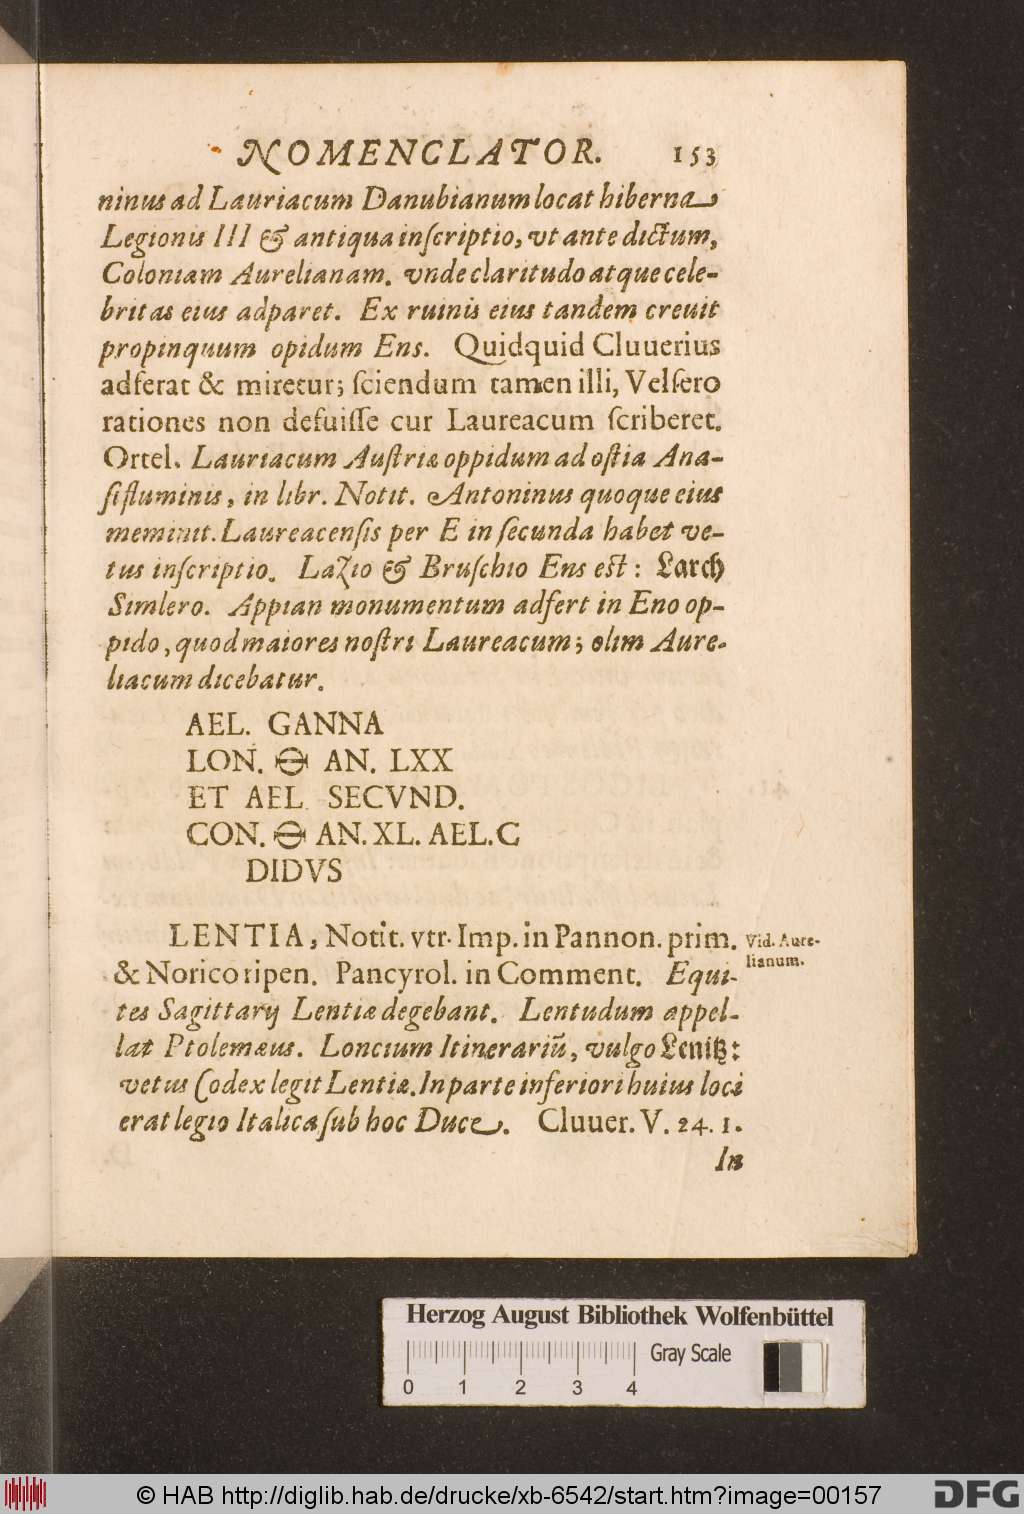 NOMENCLATOR. 153
ninus ad Lauriacum Danubianum locat hiberna
Legionis III & antiqua inſcriptio, vt ante dictum,
Coloniam Aurelianam. vnde claritudo atque cele-
britas eius adparet. Ex ruinis eius tandem creuit
propinquum opidum Ens. Quidquid Cluuerius
adferat & miretur; ſciendum tamen illi, Velſero
rationes non defuiſſe cur Laureacum ſcriberet.
Ortel. Lauriacum Auſtriæ oppidum ad oſtia Ana-
ſi fluminis, in libr. Notit. Antoninus quoque eius
meminit. Laureacenſis per E in ſecunda habet ve-
tus inſcriptio. Lazio & Bruſchio Ens eſt: Larch
Simlero. Appian monumentum adfert in Eno op-
pido, quod maiores noſtri Laureacum; olim Aure-
liacum dicebatur.
AEL. GANNA
LON. ⊖ AN. LXX
ET AEL SECVND.
CON. ⊖ AN. XL. AEL. C
DIDVS
LENTIA, Notit. vtr. Imp. in Pannon. prim.
Vid. Aure-
lianum.
& Norico ripen. Pancyrol. in Comment. Equi-
tes Sagittarij Lentiæ degebant. Lentudum appel-
lat Ptolemæus. Loncium Itinerariũ, vulgo Lenitz:
vetus Codex legit Lentiæ. In parte inferiori huius loci
erat legio Italica ſub hoc Duce. Cluuer. V. 24. 1.
In
Herzog August Bibliothek Wolfenbüttel
Gray Scale
0 1 2 3 4
© HAB http://diglib.hab.de/drucke/xb-6542/start.htm?image=00157
DFG